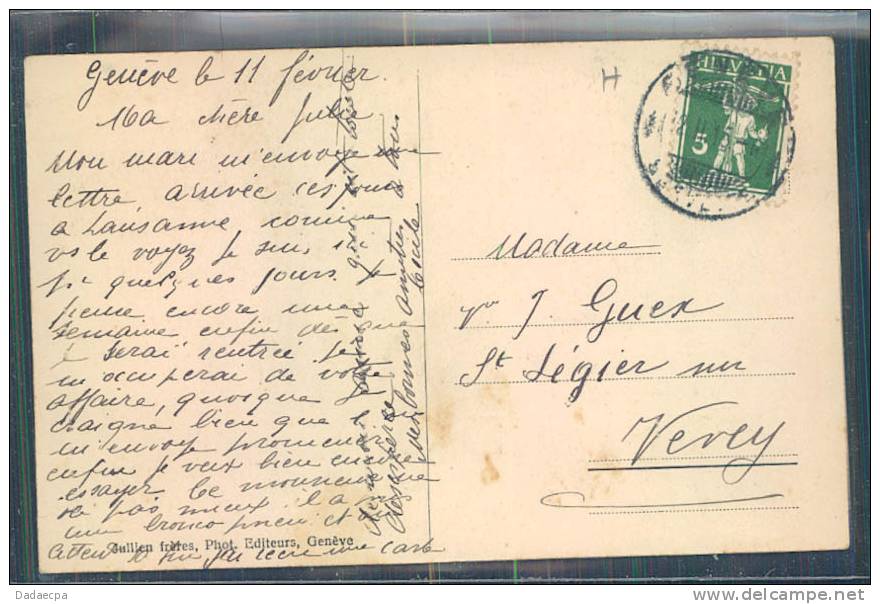 Genève le 11 février.
Ma chère Julie
Mon mari m'envoye une
lettre, arrivée ces jours
a Lausanne comme
vs le voyez je suis ici
pr quelques jours. Je
pense encore une
semaine enfin dès que
je serai rentrée je
m'occuperai de votre
affaire, quoique je
craigne bien que l'on
m'envoye promener
enfin je veux bien encore
essayer. Ce monsieur
va pas mieux il a
une bronco pneu et
attend je lui ai écrit une carte
mes bonnes amitiés à tous
HELVETIA
5
H
Madame
Vve J. Guex
St Légier sur
Vevey
Jullien frères, Phot. Editeurs, Genève
Dadaecpa